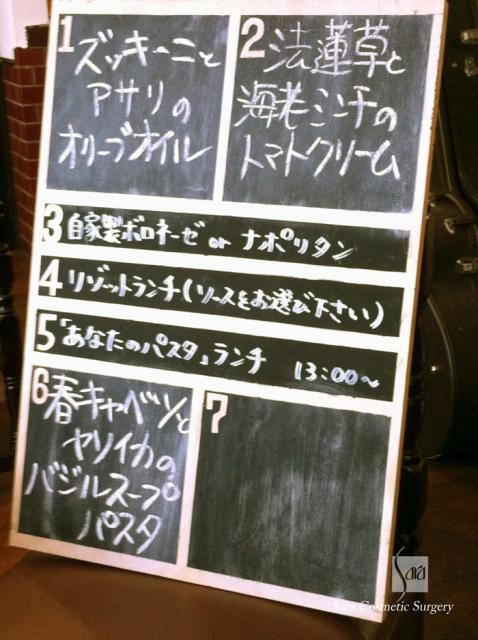 1 ズッキーニと
アサリの
オリーブオイル
2 法蓮草と
海老ミンチの
トマトクリーム
3 自家製ボロネーゼ or ナポリタン
4 リゾットランチ(ソースをお選び下さい)
5 「あなたのパスタ」ランチ 13:00〜
6 春キャベツと
ヤリイカの
バジルスープ
パスタ
7
Sara
Sara Cosmetic Surgery